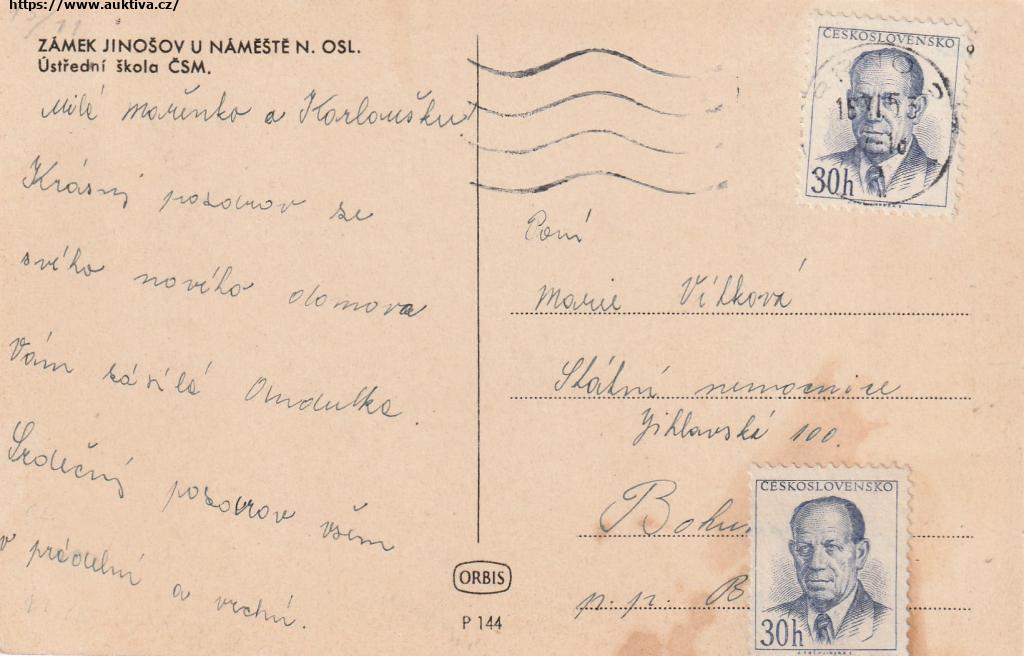 https://www.auktiva.cz/
ZÁMEK JINOŠOV U NÁMĚŠTĚ N. OSL.
Ústřední škola ČSM.
Milá Mařenko a Karloušku!
Krásný pozdrav ze
svého nového domova
Vám zasílá Andulka.
Srdečný pozdrav všem
v prádelní a vrchní.
ČESKOSLOVENSKO
30h
Paní
Marie Vítková
Státní nemocnice
Jihlavská 100.
Bohu
p.p. B
ČESKOSLOVENSKO
30h
ORBIS
P 144